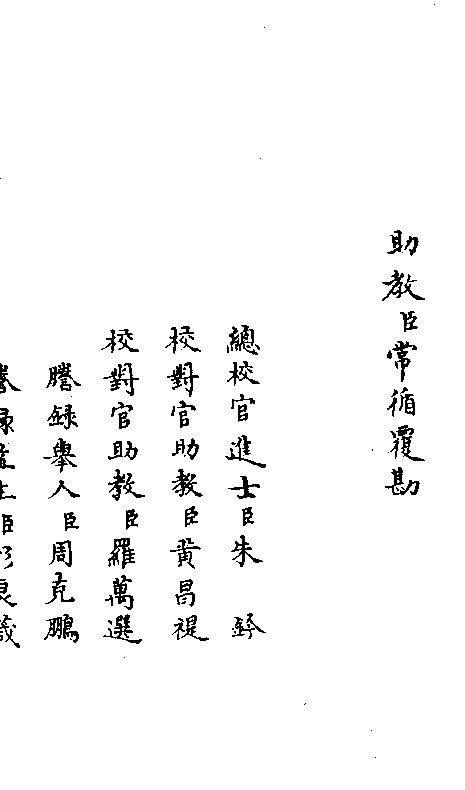 助教臣常循覆勘
總校官進士臣朱鈐
校對官助教臣黃昌禔
校對官助教臣羅萬選
謄錄舉人臣周克鵬
謄錄監生臣彭良箴